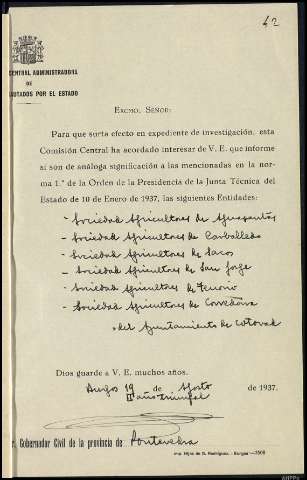 42
CENTRAL ADMINISTRADORA
DE
AUTADOS POR EL ESTADO
EXCMO. SEÑOR:
Para que surta efecto en expediente de investigación, esta
Comisión Central ha acordado interesar de V. E. que informe
si son de análoga significación a las mencionadas en la nor-
ma 1.ª de la Orden de la Presidencia de la Junta Técnica del
Estado de 10 de Enero de 1937, las siguientes Entidades:
- Sociedad Agricultores de Aguasantas
- Sociedad Agricultores de Carballedo
- Sociedad Agricultores de
- Sociedad Agricultores de San Jorge
- Sociedad Agricultores de Tenorio
- Sociedad Agricultores de
del Ayuntamiento de Cotovad
Dios guarde a V. E. muchos años.
Burgos 19 de Agosto de 1937.
II año triunfal
r. Gobernador Civil de la provincia de Pontevedra
Imp. Hijos de S. Rodríguez.-Burgos